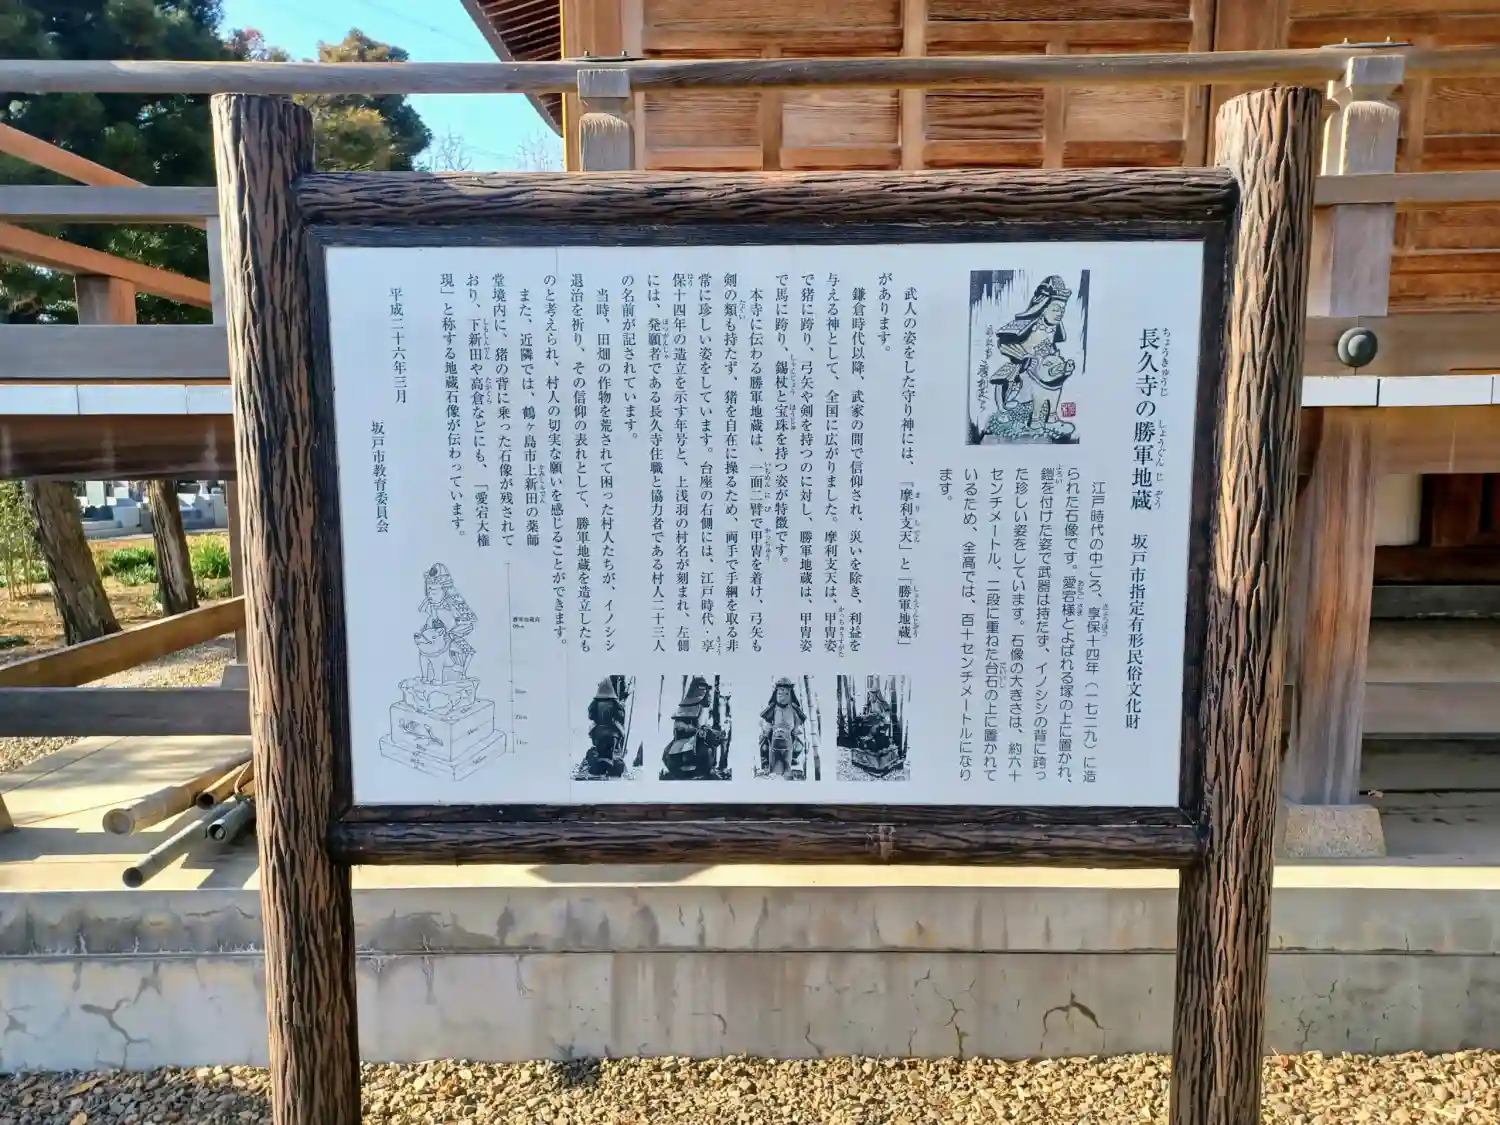 長久寺の勝軍地蔵　坂戸市指定有形民俗文化財
江戸時代の中ごろ、享保十四年（一七二九）に造
られた石像です。愛宕様とよばれる塚の上に置かれ、
鎧を付けた姿で武器は持たず、イノシシの背に跨っ
た珍しい姿をしています。石像の大きさは、約六十
センチメートル、二段に重ねた台石の上に置かれて
いるため、全高では、百十センチメートルになり
ます。
武人の姿をした守り神には、『摩利支天』と『勝軍地蔵』
があります。
鎌倉時代以降、武家の間で信仰され、災いを除き、利益を
与える神として、全国に広がりました。摩利支天は、甲冑姿
で猪に跨り、弓矢や剣を持つのに対し、勝軍地蔵は、甲冑姿
で馬に跨り、錫杖と宝珠を持つ姿が特徴です。
本寺に伝わる勝軍地蔵は、一面二臂で甲冑を着け、弓矢も
剣の類も持たず、猪を自在に操るため、両手で手綱を取る非
常に珍しい姿をしています。台座の右側には、江戸時代・享
保十四年の造立を示す年号と、上浅羽の村名が刻まれ、左側
には、発願者である長久寺住職と協力者である村人二十三人
の名前が記されています。
当時、田畑の作物を荒されて困った村人たちが、イノシシ
退治を祈り、その信仰の表れとして、勝軍地蔵を造立したも
のと考えられ、村人の切実な願いを感じることができます。
また、近隣では、鶴ヶ島市上新田の薬師
堂境内に、猪の背に乗った石像が残されて
おり、下新田や高倉などにも、「愛宕大権
現」と称する地蔵石像が伝わっています。
平成二十六年三月
坂戸市教育委員会